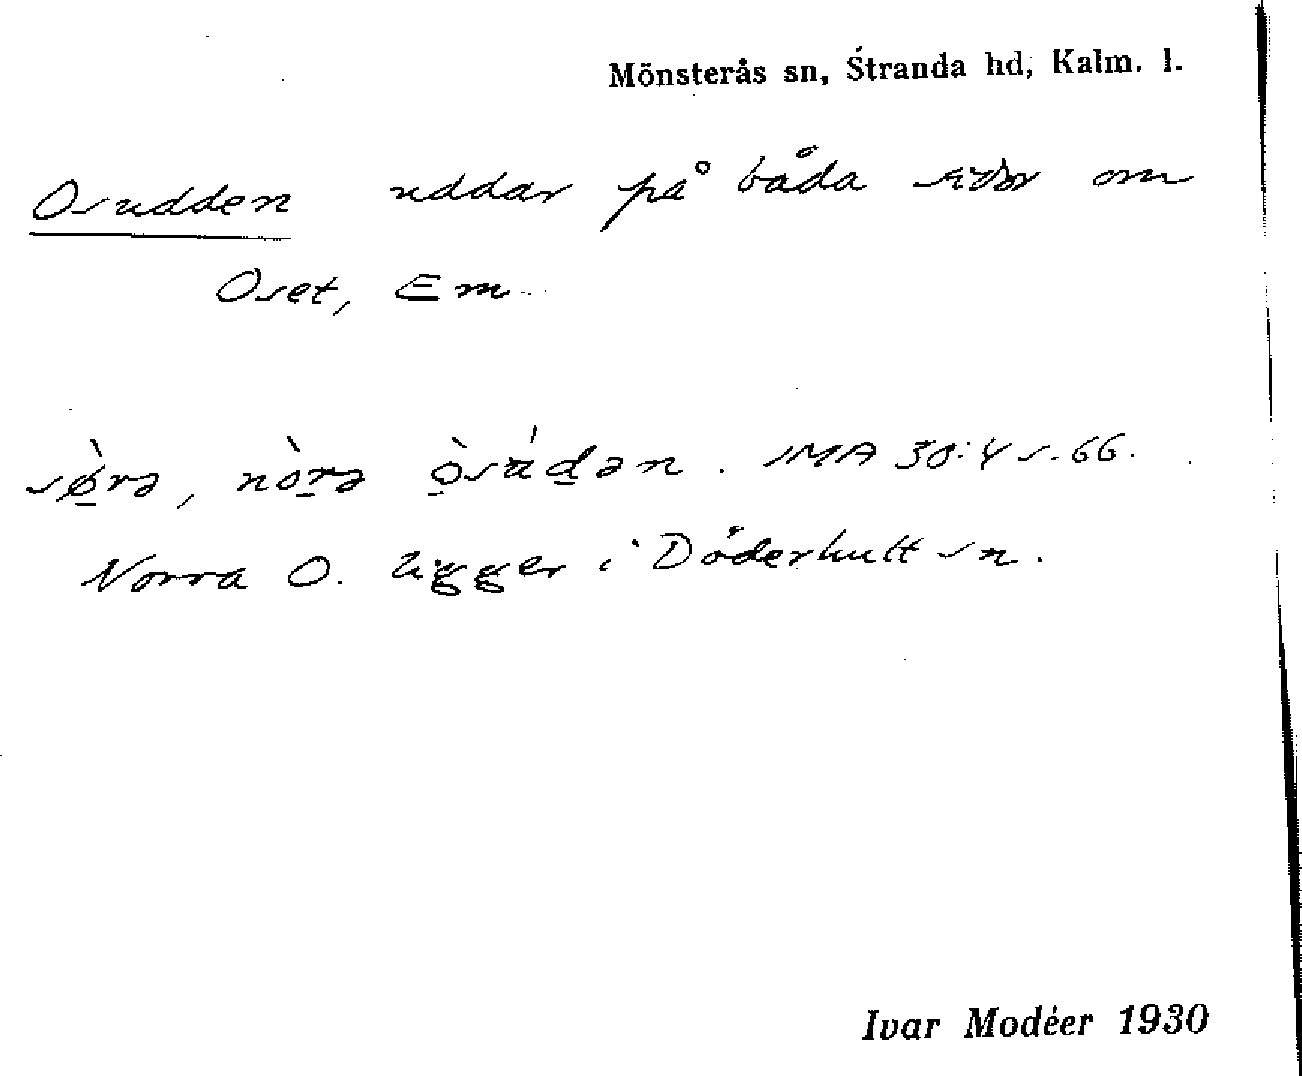 Mönsterås sn, Stranda hd, Kalm. l.
Osudden uddar på båda sidor om
Oset, Em
sø̀rə, nòrə òsúdən. IMA 30:4 s. 66.
Norra O. ligger i Döderhult sn.
Ivar Modéer 1930